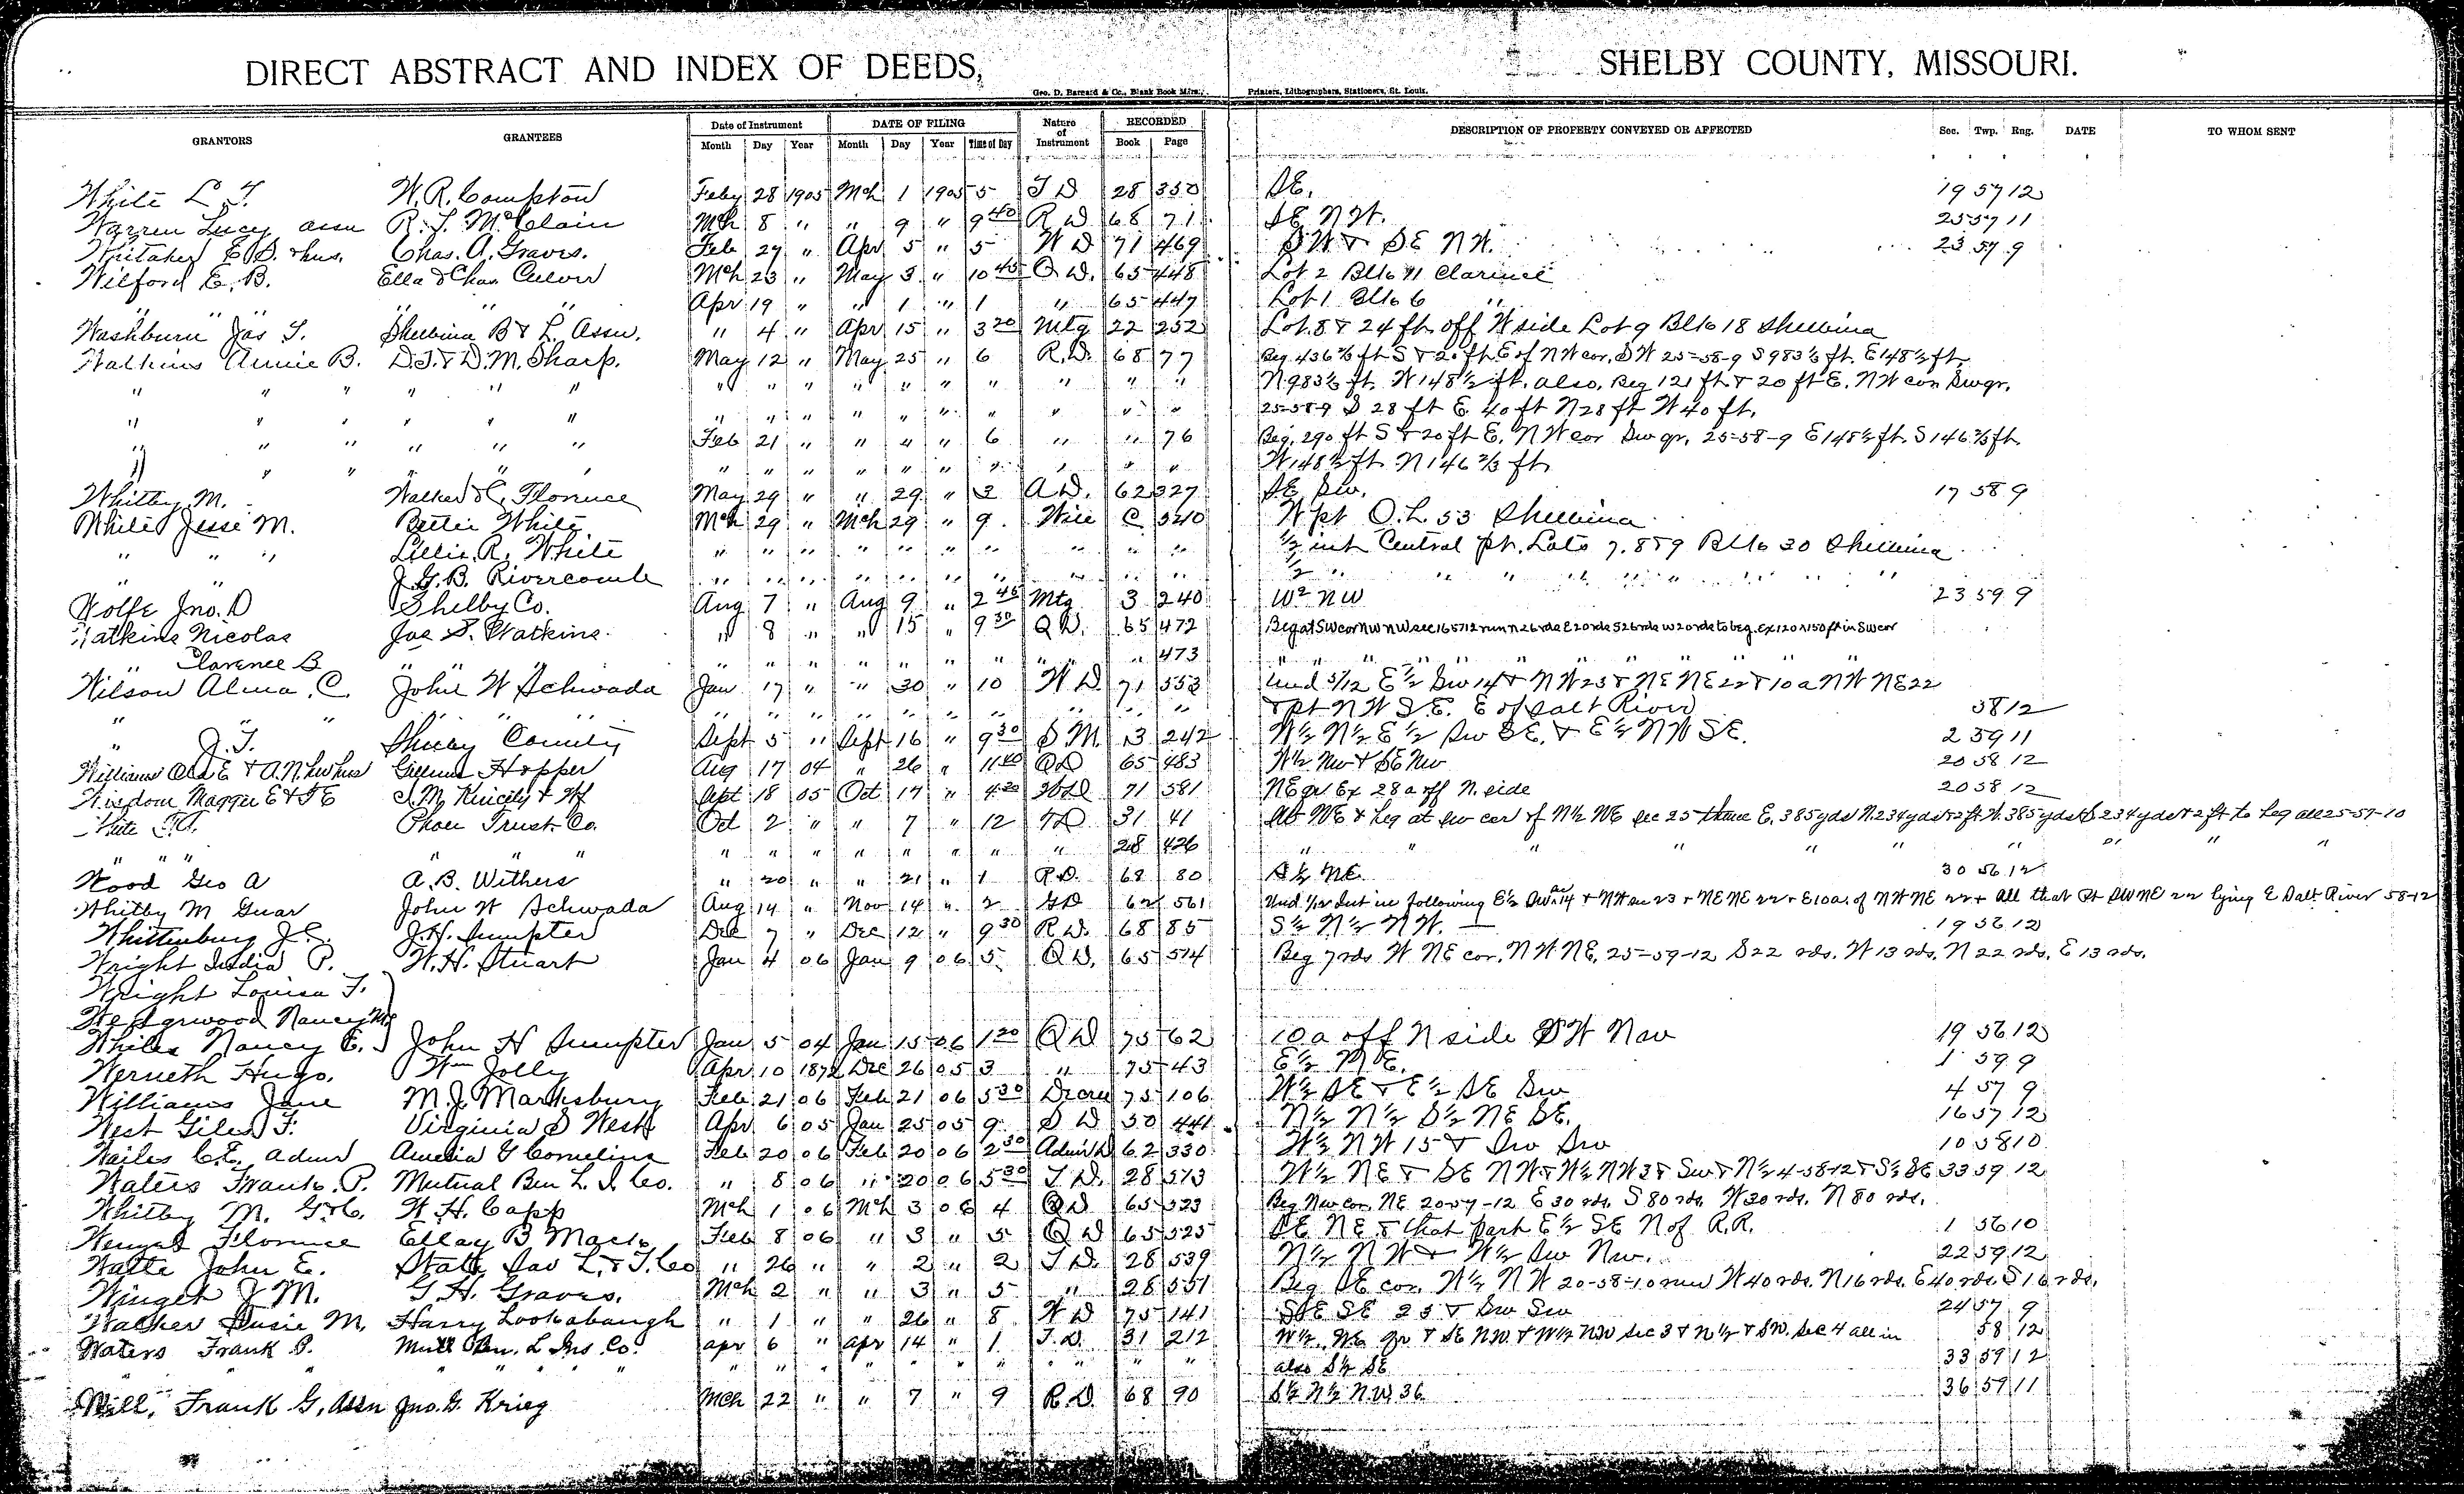 DIRECT ABSTRACT AND INDEX OF DEEDS, SHELBY COUNTY, MISSOURI.
Geo. D. Barnard & Co., Blank Book Mfrs., Printers, Lithographers, Stationers, St. Louis.
GRANTORS GRANTEES Date of Instrument DATE OF FILING Nature of Instrument RECORDED DESCRIPTION OF PROPERTY CONVEYED OR AFFECTED Sec. Twp. Rng. DATE TO WHOM SENT
Month Day Year Month Day Year Time of Day Book Page
White L. T. W. R. Compton Feby 28 1905 Mch 1 1905 5 T D 28 350 SE. 19 57 12
Warren Lucy assn R. T. McClain Mch 8 " " 9 " 9 40 R D 68 71 SE NW. 25 57 11
Whitaker E. D. & hus. Chas. A. Graves. Feb 27 " Apr 5 " 5 W D 71 469 SW & SE NW. 23 57 9
Wilford E. B. Ella & Chas Culver Mch 23 " May 3 " 10 45 Q D. 65 448 Lot 2 Blk 11 Clarence
" " " " " Apr 19 " " 1 " 1 " 65 447 Lot 1 Blk 6 "
Washburn Jas T. Shelbina B & L. Assn. " 4 " Apr 15 " 3 20 Mtg 22 252 Lot 8 & 24 ft. off W side Lot 9 Blk 18 Shelbina
Watkins Annie B. D. T. & D. M. Sharp. May 12 " May 25 " 6 R. D. 68 77 Beg 436 2/3 ft S & 20 ft E of NW cor. SW 25-58-9 S 983 1/3 ft. E 148 1/2 ft.
" " " " " " " " " " " " " " " " N 983 1/3 ft. W 148 1/2 ft. also, Beg 121 ft & 20 ft E. NW cor Sw qr.
" " " " " " " " " " " " " " " " 25-58-9 S 28 ft E. 40 ft N 28 ft W 40 ft.
" " " " " " Feb 21 " " " " 6 " " 76 Beg. 290 ft S & 20 ft E. NW cor Sw qr. 25-58-9 E 148 1/2 ft. S 146 2/3 ft
" " " " " " " " " " " " " " " W 148 1/2 ft N 146 2/3 ft
Whitby M. Walker & C. Florence May 29 " " 29 " 2 A D. 62 327 SE Sw. 17 58 9
White Jesse M. Bettie White Mch 29 " Mch 29 " 9 Will C 540 W pt O. L. 53 Shelbina
" " " Lillie R. White " " " " " " " " " " 1/2 int Central pt. Lots 7. 8 & 9 Blk 30 Shelbina
" " J. G. B. Rivercomb " " " " " " " " " " 1/2 " " " " " " " " "
Wolfe Jno. D Shelby Co. Aug 7 " Aug 9 " 2 45 Mtg 3 240 W2 NW 23 59 9
Watkins Nicolas Jas S. Watkins " 8 " " 15 " 9 30 Q D. 65 472 Beg at SW cor NW NW sec 16 57 12 run N 26 rds E 20 rds S 26 rds W 20 rds to beg. Ex 120 x 150 ft in SW cor
" Clarence B " " " " " " " " " " " 473 " " " " " " " " "
Wilson Alma C. John W Schwada Jan 17 " " 30 " 10 W D. 71 553 Und 5/12 E 1/2 Sw 14 & NW 23 & NE NE 22 & 10 a NW NE 22
" " " " " " " " " " " " " " " " & pt NW SE. E of Salt River 58 12
" J. T. Shelby County Sept 5 " Sept 16 " 9 30 S M. 3 242 W 1/2 N 1/2 E 1/2 Sw SE. & E 1/2 NW SE. 2 59 11
Williams Ola E & A. N. her hus Hopper Aug 17 04 " 26 " 11 40 Q D 65 483 W 1/2 Nw & SE Nw 20 58 12
Wisdom Maggie E & J E J. M. & Wf Sept 18 05 Oct 17 " 4 20 W D 71 581 NE qr Ex 28 a off N. side 20 58 12
White T. A. Phoen Trust. Co. Oct 2 " " 7 " 12 T D 31 41 NE & beg at sw cor of N 1/2 NE sec 25 thence E. 385 yds N. 234 yds & 2 ft W. 385 yds S 234 yds & 2 ft to beg all 25-57-10
" " " " " " " " " " " " " " 28 426 " " " " " " " " "
Wood Geo A A. B. Withers " 20 " " 21 " 1 R. D. 68 80 S 1/2 NE. 30 56 12
Whitby M Guar John W Schwada Aug 14 " Nov 14 " 2 G D 62 561 Und 1/12 Int in following E 1/2 Sw 14 & NW 23 & NE NE 22 & E 10 a. of NW NE 22 & All that Pt SW NE 22 lying E Salt River 58-12
Whittenburg J. C. J. H. Sumpter Dec 7 " Dec 12 " 9 30 R D. 68 85 S 1/2 N 1/2 NW. 19 56 12
Wright India P. W. H. Stuart Jan 4 06 Jan 9 06 5 Q D. 65 514 Beg 7 rds W NE cor. NW NE. 25-59-12 S 22 rds. W 13 rds. N 22 rds. E 13 rds.
Wright Louisa F.
Wedgewood Nancy M
Whiles Nancy E. John H Sumpter Jan 5 04 Jan 15 06 1 20 Q D 75 62 10 a off N side SW Nw 19 56 12
Werneth Hugo. Wm Jolly Apr 10 1872 Dec 26 05 3 " 75 43 E 1/2 NE. 1 59 9
Williams Jane M. J. Marksbury Feb 21 06 Feb 21 06 5 30 Decree 75 106 W 1/2 SE & E 1/2 SE Sw 4 57 9
West Giles F. Virginia S West Apr 6 05 Jan 25 05 9 S D 50 441 N 1/2 N 1/2 S 1/2 NE SE. 16 57 12
Wailes C. E. admr Amelia G Cornelius Feb 20 06 Feb 20 06 2 30 Adm'r D 62 330 W 1/2 NW 15 & Sw Sw 10 58 10
Waters Frank. P. Mutual Ben L. I. Co. " 8 06 " 20 06 5 30 T. D. 28 573 W 1/2 NE & SE NW & W 1/2 NW 3 & Sw & N 1/2 4-58-12 & S 1/2 SE 33 59 12
Whitby M. G & C. W. H. Capp Mch 1 06 Mch 3 06 4 Q D 65 523 Beg Nw cor. NE 20-57-12 E 30 rds. S 80 rds. W 30 rds. N 80 rds.
Florence Ellay B Mack Feb 8 06 " 3 " 5 Q D 65 525 SE NE & that part E 1/2 SE N of R.R. 1 56 10
Watte John E. State Sav L. & T. Co " 26 " " 2 " 2 T D. 28 539 N 1/2 NW & W 1/2 Sw Nw. 22 59 12
Winget J M. G. H. Graves. Mch 2 " " 3 " 5 " 28 551 Beg SE cor. W 1/2 NW 20-58-10 run W 40 rds. N 16 rds. E 40 rds. S 16 rds.
Walker Susie M. Harry Lookabaugh " 1 " " 26 " 8 W D 75 141 SE SE 23 & Sw Sw 24 57 9
Waters Frank P. Mutl Ben. L Ins Co. apr 6 " apr 14 " 1 T. D. 31 212 W 1/2. NE qr & SE NW. & W 1/2 NW Sec 3 & N 1/2 & SW. Sec 4 all in 58 12
" " " " " " " " " " " " " " " also S 1/2 SE 33 59 12
Will, Frank G, Assn Jno. G. Krieg Mch 22 " " 7 " 9 R. D. 68 90 S 1/2 N 1/2 N.W 36 36 59 11